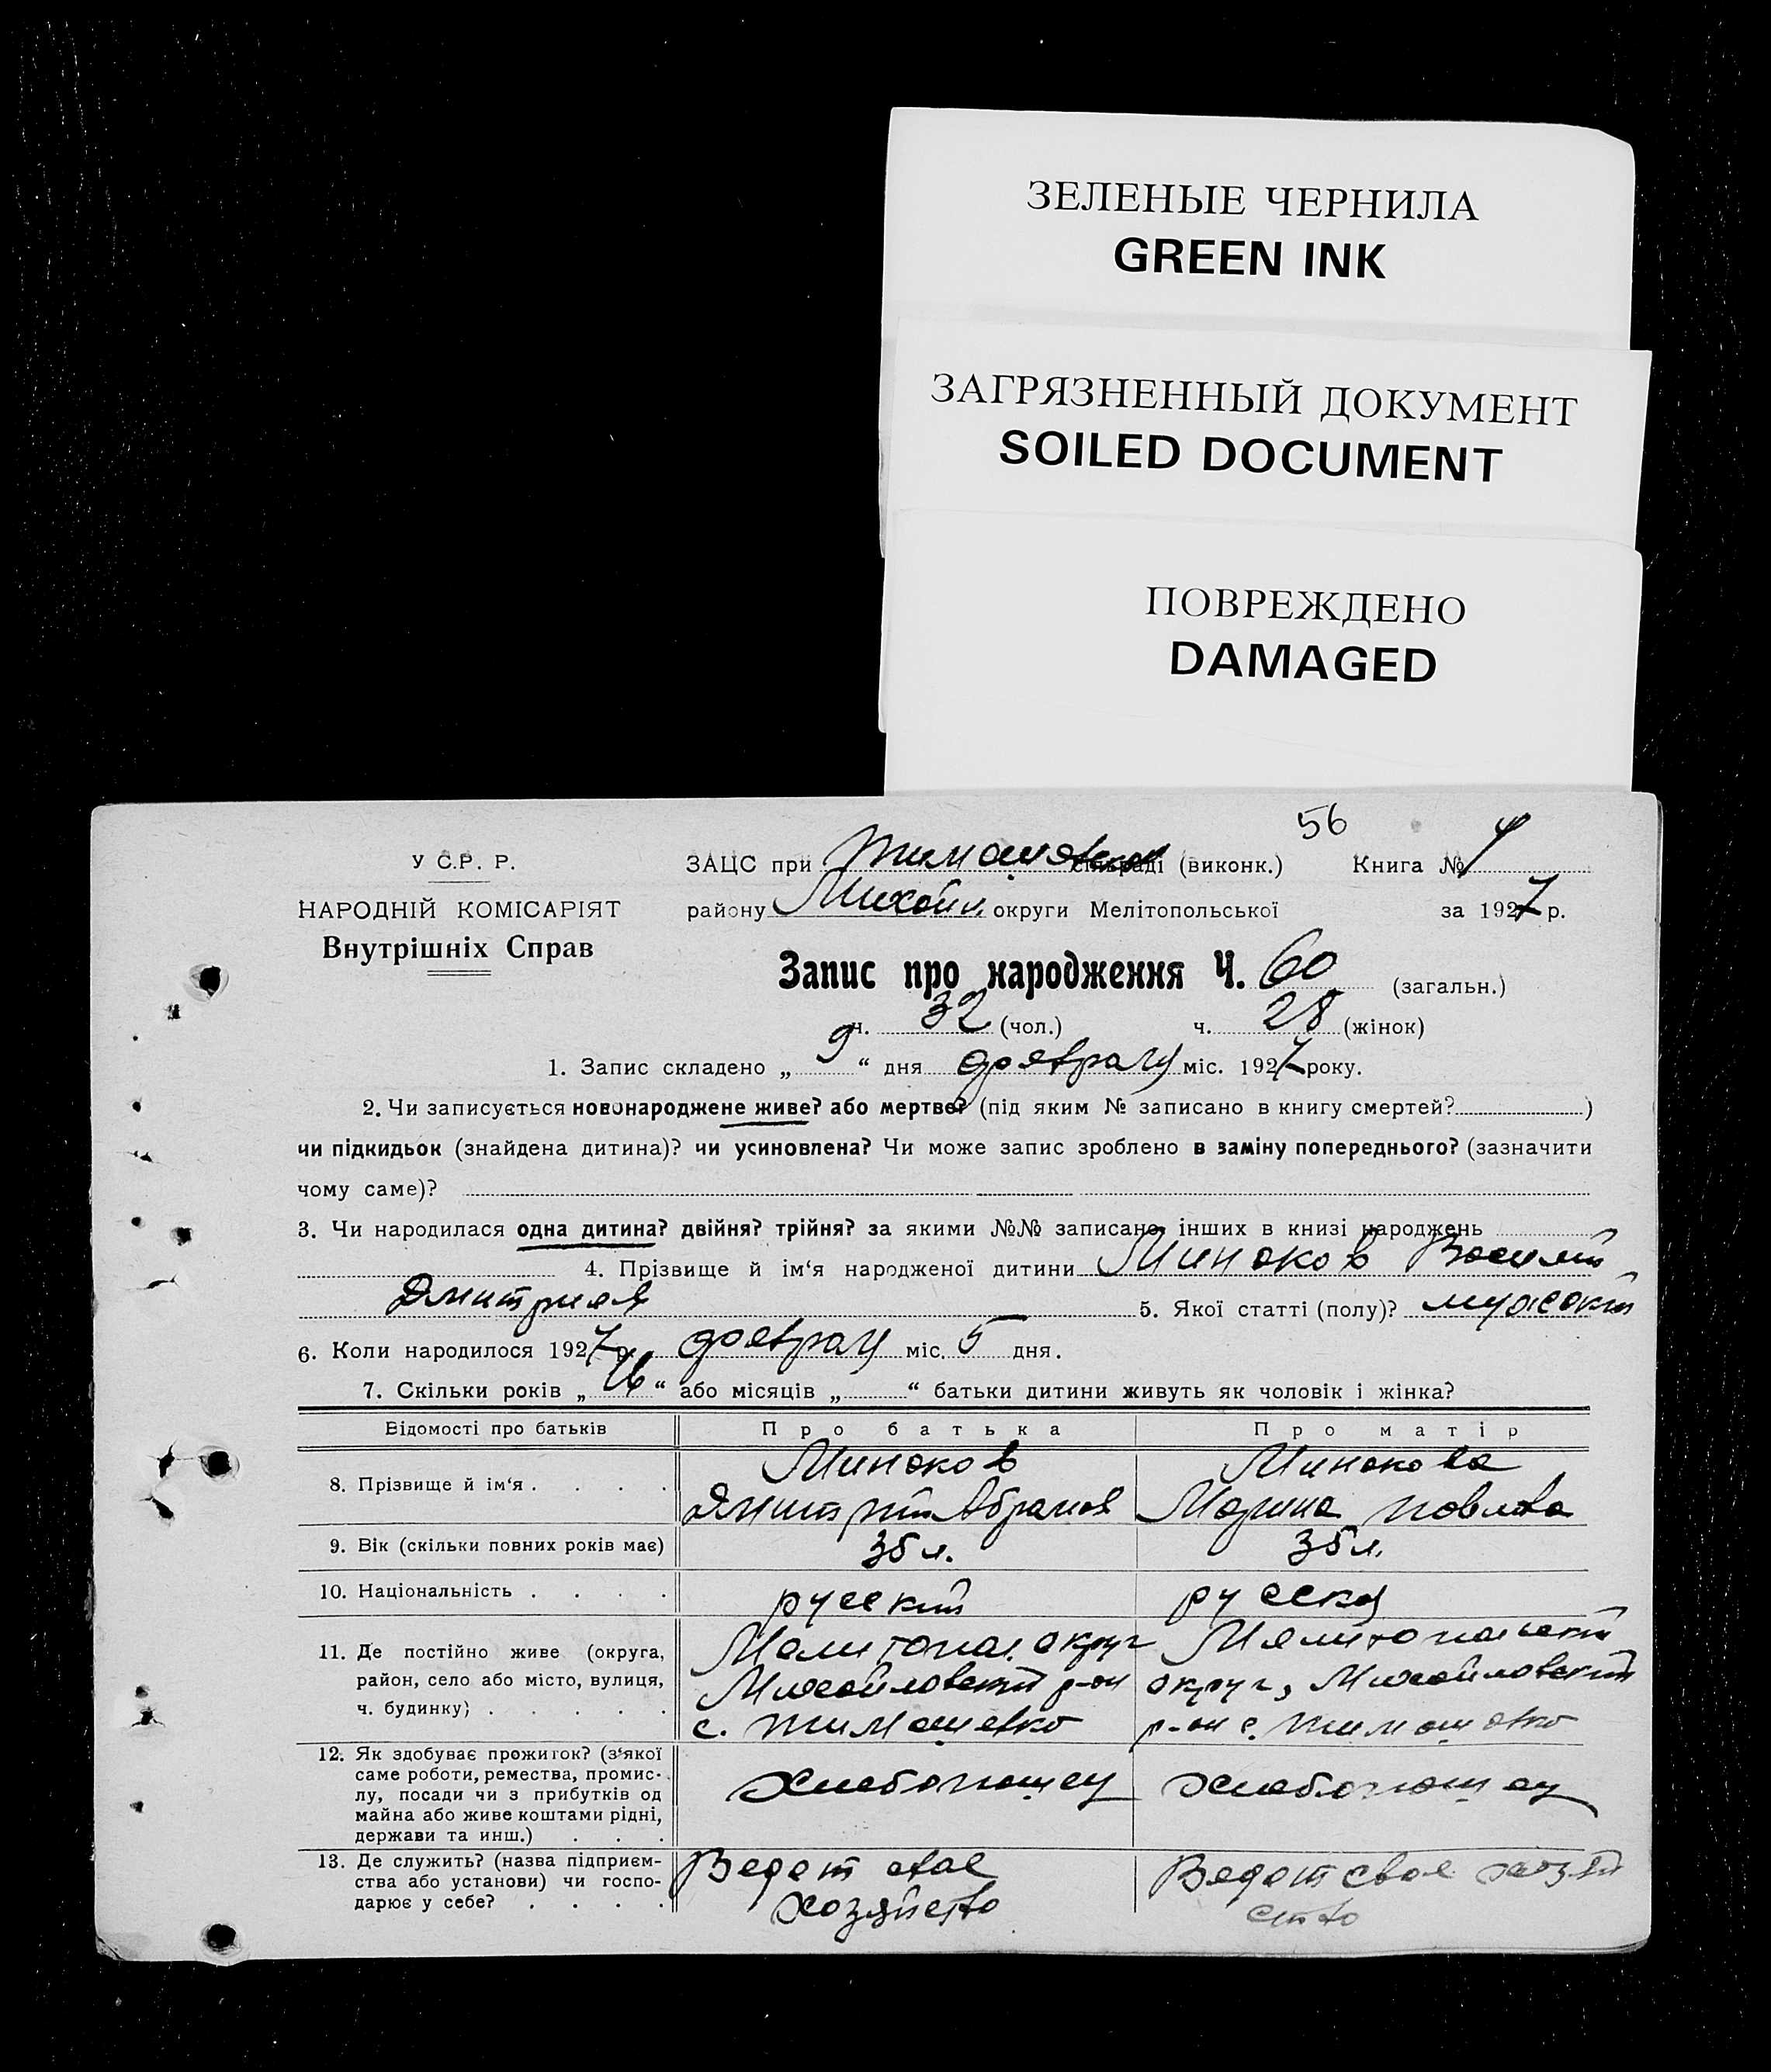 ЗЕЛЕНЫЕ ЧЕРНИЛА
GREEN INK
ЗАГРЯЗНЕННЫЙ ДОКУМЕНТ
SOILED DOCUMENT
ПОВРЕЖДЕНО
DAMAGED
56
У С.Р. Р.
НАРОДНІЙ КОМІСАРІЯТ
Внутрішніх Справ
ЗАЦС при сільраді (виконк.) Книга №
району Михайл. округи Мелітопольської за 1927 р.
Запис про народження Ч. 60 (загальн.)
ч. 32 (чол.) ч. 28 (жінок)
1. Запис складено „ 9 “ дня февраля міс. 1927 року.
2. Чи записується новонароджене живе? або мертве? (під яким № записано в книгу смертей? )
чи підкидьок (знайдена дитина)? чи усиновлена? Чи може запис зроблено в заміну попереднього? (зазначити
чому саме)?
3. Чи народилася одна дитина? двійня? трійня? за якими №№ записано інших в книзі народжень
4. Прізвище й ім‘я народженої дитини Минаков Василий
Дмитриев 5. Якої статті (полу)? мужской
6. Коли народилося 1927 р. февраля міс. 5 дня.
7. Скільки років „ 16 “ або місяців „ “ батьки дитини живуть як чоловік і жінка?
Відомості про батьків Про батька Про матір
8. Прізвище й ім‘я . . . . Минаков Дмитрий Абрамов Минакова Марина Павлова
9. Вік (скільки повних років має) 35 л. 35 л.
10. Національність . . . . русский русская
11. Де постійно живе (округа, Мелитопол. округ Мелитопольский
район, село або місто, вулиця, Михайловский р-он округ, Михайловский
ч. будинку) . . . . . с. Тимашевка р-он с. Тимашевка
12. Як здобуває прожиток? (з‘якої
саме роботи, ремества, промис-
лу, посади чи з прибутків од Хлебопашец Хлебопашец
майна або живе коштами рідні,
держави та инш.) . . .
13. Де служить? (назва підприєм- Ведет свое Ведет свое хозяй
ства або установи) чи госпо- хозяйство ство
дарює у себе? . . . .